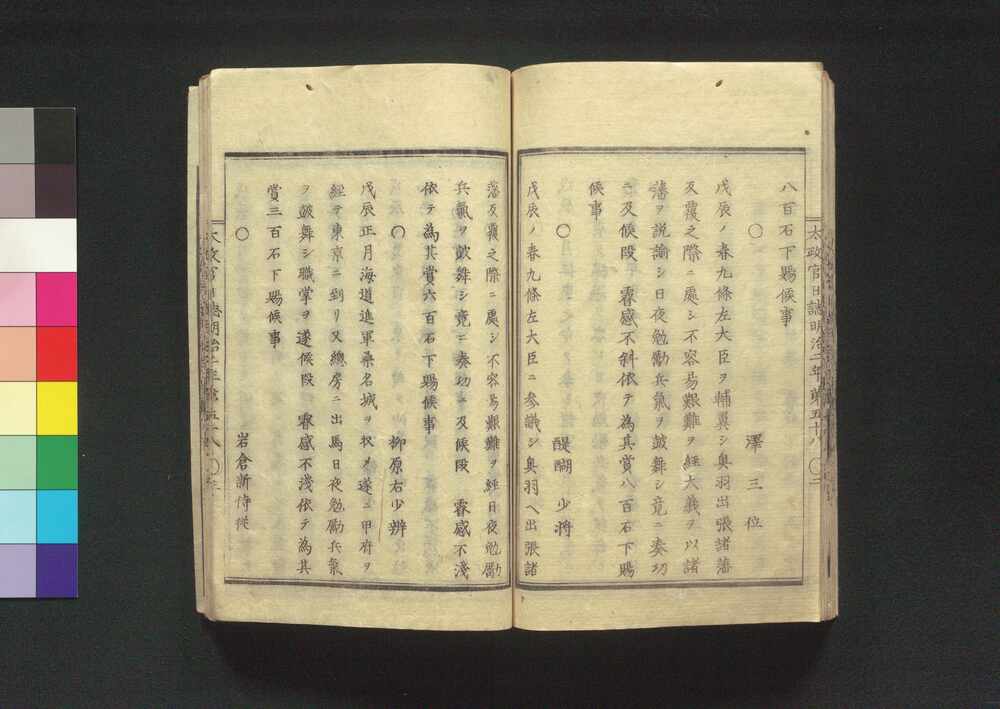 八百石下賜候事
〇
澤三位
戊辰ノ春九條左大臣ヲ輔翼シ奥羽出張諸藩
反覆之際ニ處シ不容易艱難ヲ經大義ヲ以諸
藩ヲ説諭シ日夜勉勵兵氣ヲ皷舞シ竟ニ奏功
ニ及候段　睿感不斜依テ為其賞八百石下賜
候事
〇
醍醐少将
戊辰ノ春九條左大臣ニ参議シ奥羽ヘ出張諸
藩反覆之際ニ處シ不容易艱難ヲ經日夜勉勵
兵氣ヲ皷舞シ竟ニ奏功ニ及候段　睿感不淺
依テ為其賞六百石下賜候事
〇
柳原右少辨
戊辰正月海道進軍桑名城ヲ収メ遂ニ甲府ヲ
經テ東京ニ到リ又總房ニ出馬日夜勉勵兵氣
ヲ皷舞シ職掌ヲ遂候段　睿感不淺依テ為其
賞三百石下賜候事
〇
岩倉新侍従
太政官日誌明治二年第五十八 〇三